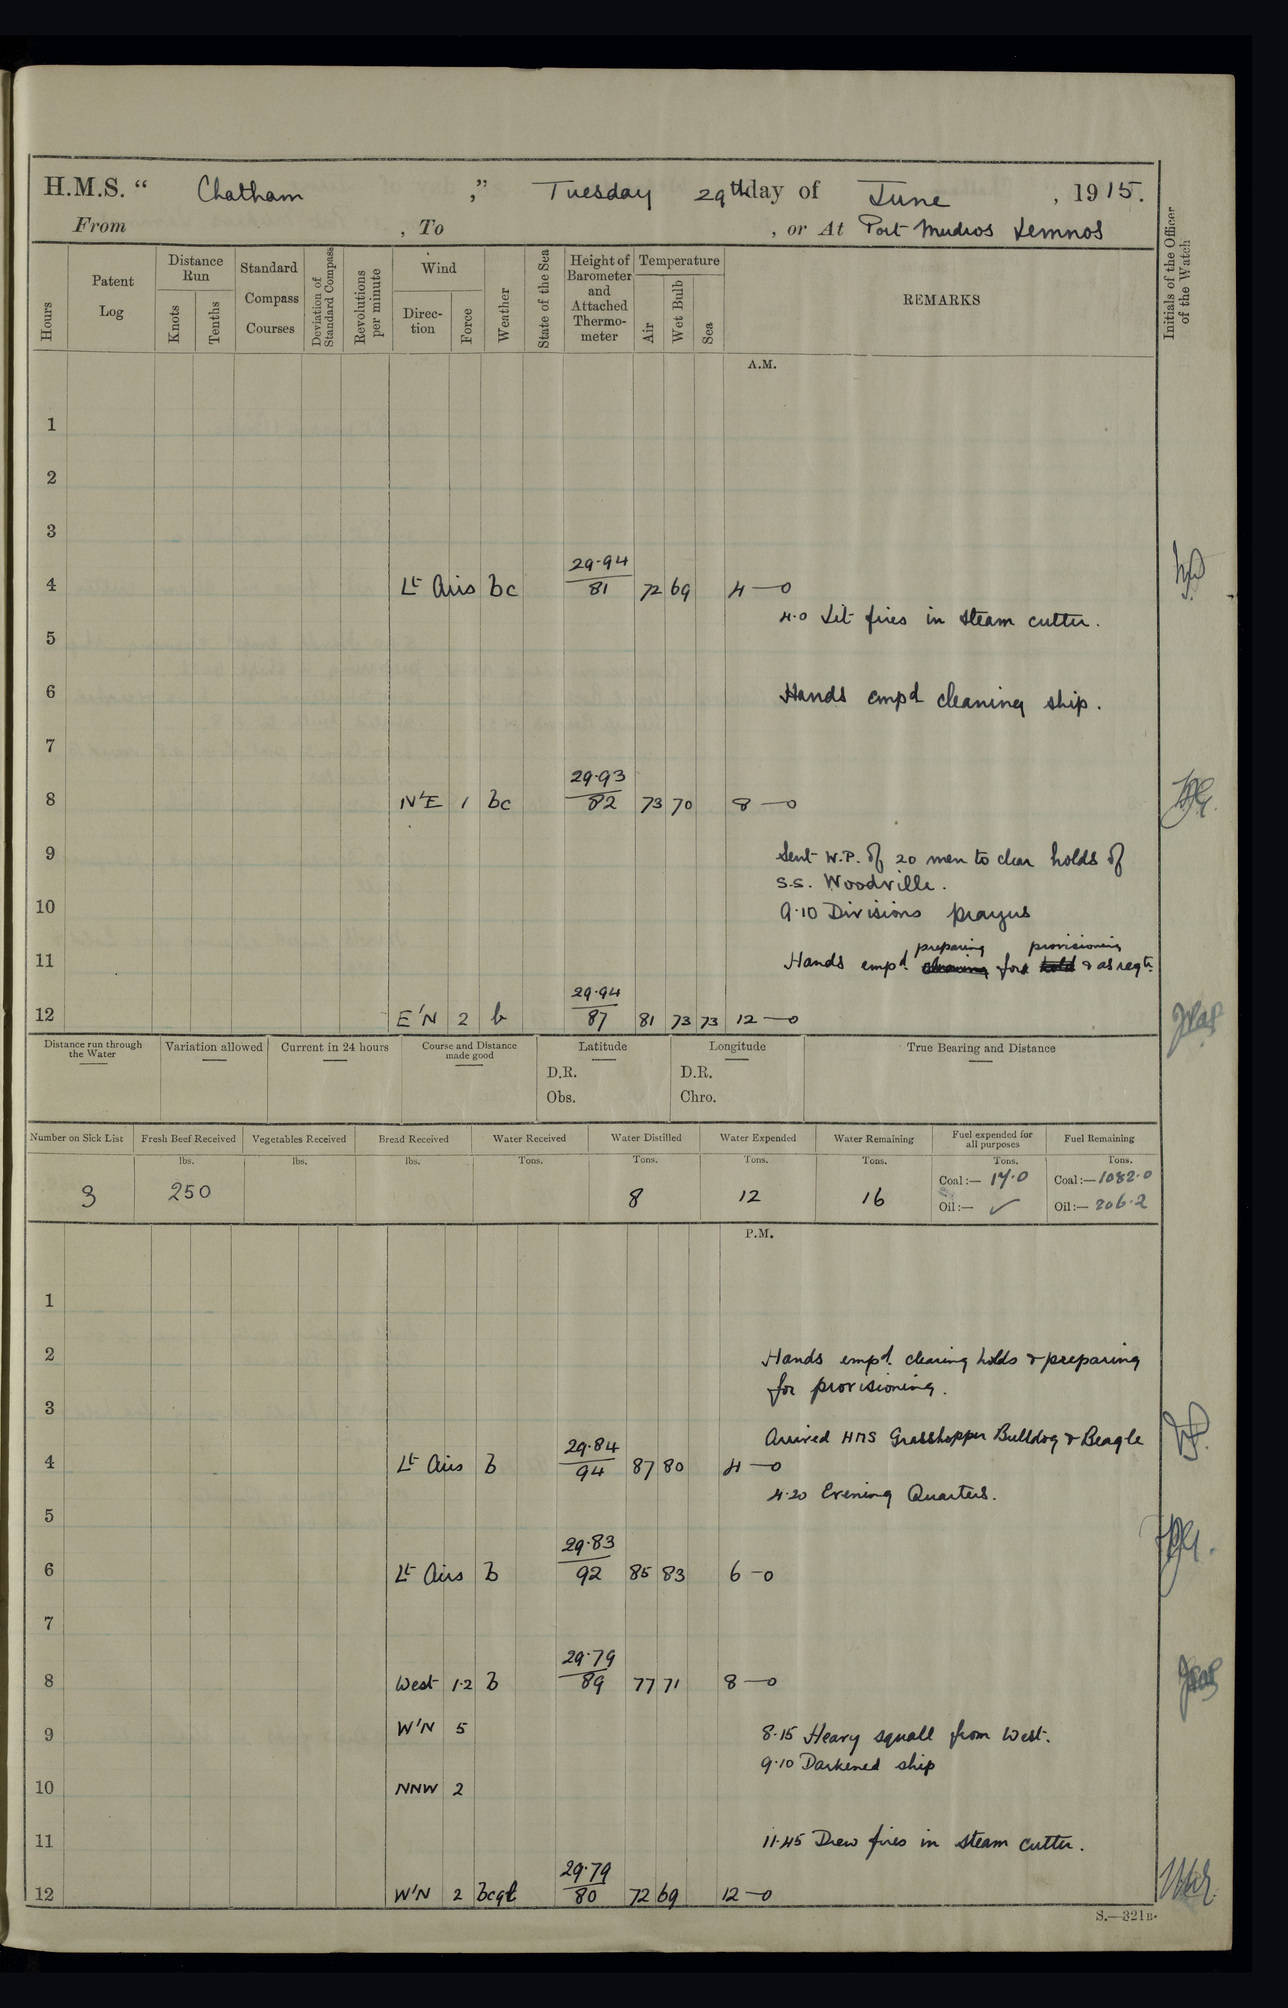 H.M.S. “ Chatham ,” Tuesday 29th day of June , 1915.
From , To , or At Port Mudros Lemnos
Hours
Patent Log
Distance Run
Knots
Tenths
Standard Compass Courses
Deviation of Standard Compass
Revolutions per minute
Wind
Direc-tion
Force
Weather
State of the Sea
Height of Barometer and Attached Thermo-meter
Temperature
Air
Wet Bulb
Sea
REMARKS
Initials of the Officer of the Watch
A.M.
1
2
3
29.94
4 Lt Airs bc 81 72 69 4—0
4.0 Lit fires in steam cutter.
5
6 Hands empd cleaning ship.
7
29.93
8 N'E 1 bc 82 73 70 8—0
9 Sent W.P. of 20 men to clear holds of
S.S. Woodville.
10 9.10 Divisions prayers
preparing provisioning
11 Hands empd. cleaning for hold & as reqte
29.94
12 E'N 2 b 87 81 73 73 12—0
Distance run through the Water
Variation allowed
Current in 24 hours
Course and Distance made good
Latitude
D.R.
Obs.
Longitude
D.R.
Chro.
True Bearing and Distance
Number on Sick List Fresh Beef Received Vegetables Received Bread Received Water Received Water Distilled Water Expended Water Remaining Fuel expended for all purposes Fuel Remaining
lbs. lbs. lbs. Tons. Tons. Tons. Tons. Tons. Tons.
3 250 8 12 16
Coal:— 17.0 Coal:—1082.0
Oil:— ✓ Oil:— 206.2
P.M.
1
2 Hands empd. clearing holds & preparing
for provisioning.
3
Arrived HMS Grasshopper Bulldog & Beagle
29.84
4 Lt Airs b 94 87 80 4—0
4.20 Evening Quarters.
5
29.83
6 Lt Airs b 92 85 83 6—0
7
29.79
8 West 1.2 b 89 77 71 8—0
9 W'N 5 8.15 Heavy squall from West.
9.10 Darkened ship
10 NNW 2
11 11.45 Drew fires in steam cutter.
29.79
12 W'N 2 bcqt 80 72 69 12—0
S.—321B.